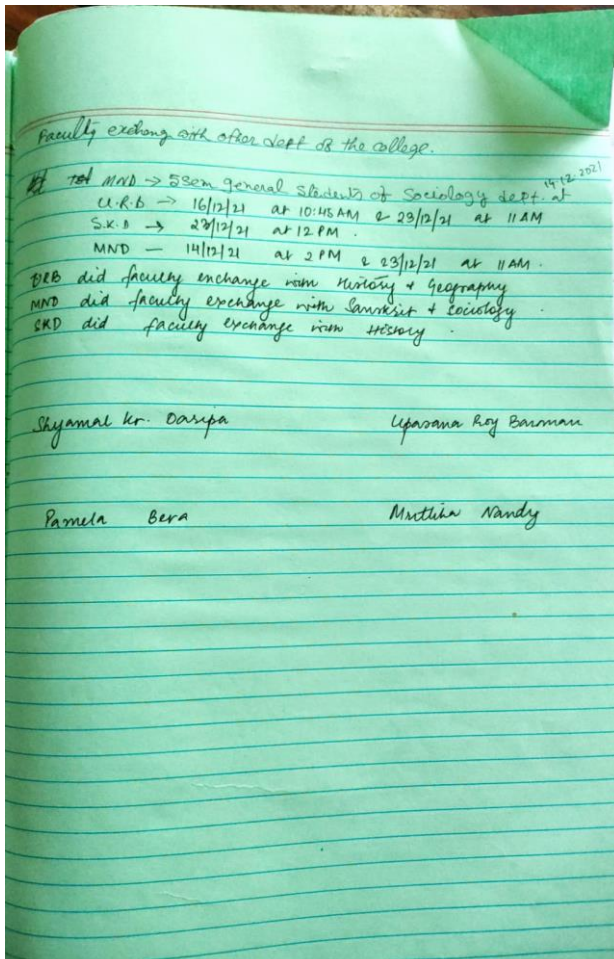 Faculty exchang with other dept of the college.
14.12.2021
MND → 5 sem general students of Sociology dept. at
U.R.B → 16/12/21 at 10:45 AM & 23/12/21 at 11 AM
S.K.D → 23/12/21 at 12 PM.
MND — 14/12/21 at 2 PM & 23/12/21 at 11 AM.
URB did faculty enchange with History + Geography
MND did faculty exchange with Sanskrit + Sociology.
SKD did faculty exchange with History.
Shyamal Kr. Dasipa Upasana Roy Barman
Pamela Bera Nandy